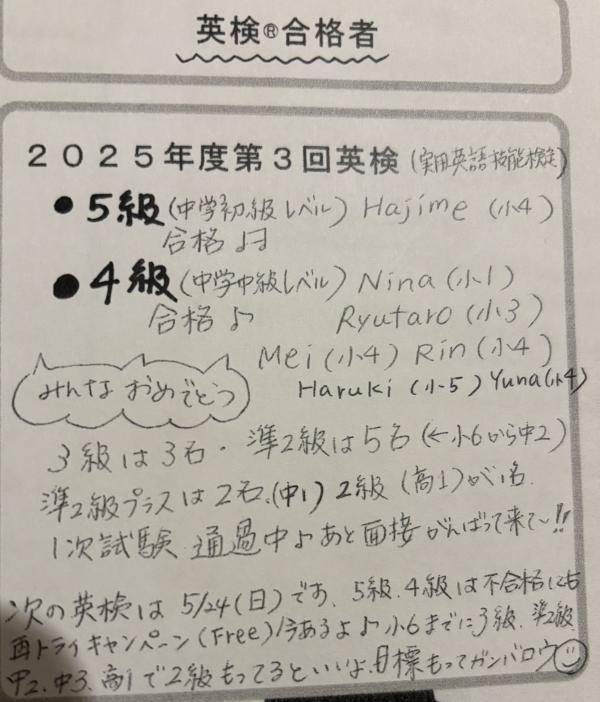 英検®合格者
2025年度第3回英検(実用英語技能検定)
● 5級(中学初級レベル) Hajime (小4)
合格♪
● 4級(中学中級レベル) Nina(小1)
合格♪ Ryutaro(小3)
Mei(小4) Rin(小4)
みんな おめでとう Haruki(小5) Yuna(小4)
3級は3名・準2級は5名(←小6から中2)
準2級プラスは2名.(中1) 2級(高1)が1名
1次試験 通過中♪あと面接がんばって来て〜!!
次の英検は 5/24(日)です. 5級.4級は不合格にも
再トライキャンペーン(Free)今あるよ♪小6までに3級. 準2級
中2.中3.高1で2級もってるといいよ.目標もってガンバロウ☺